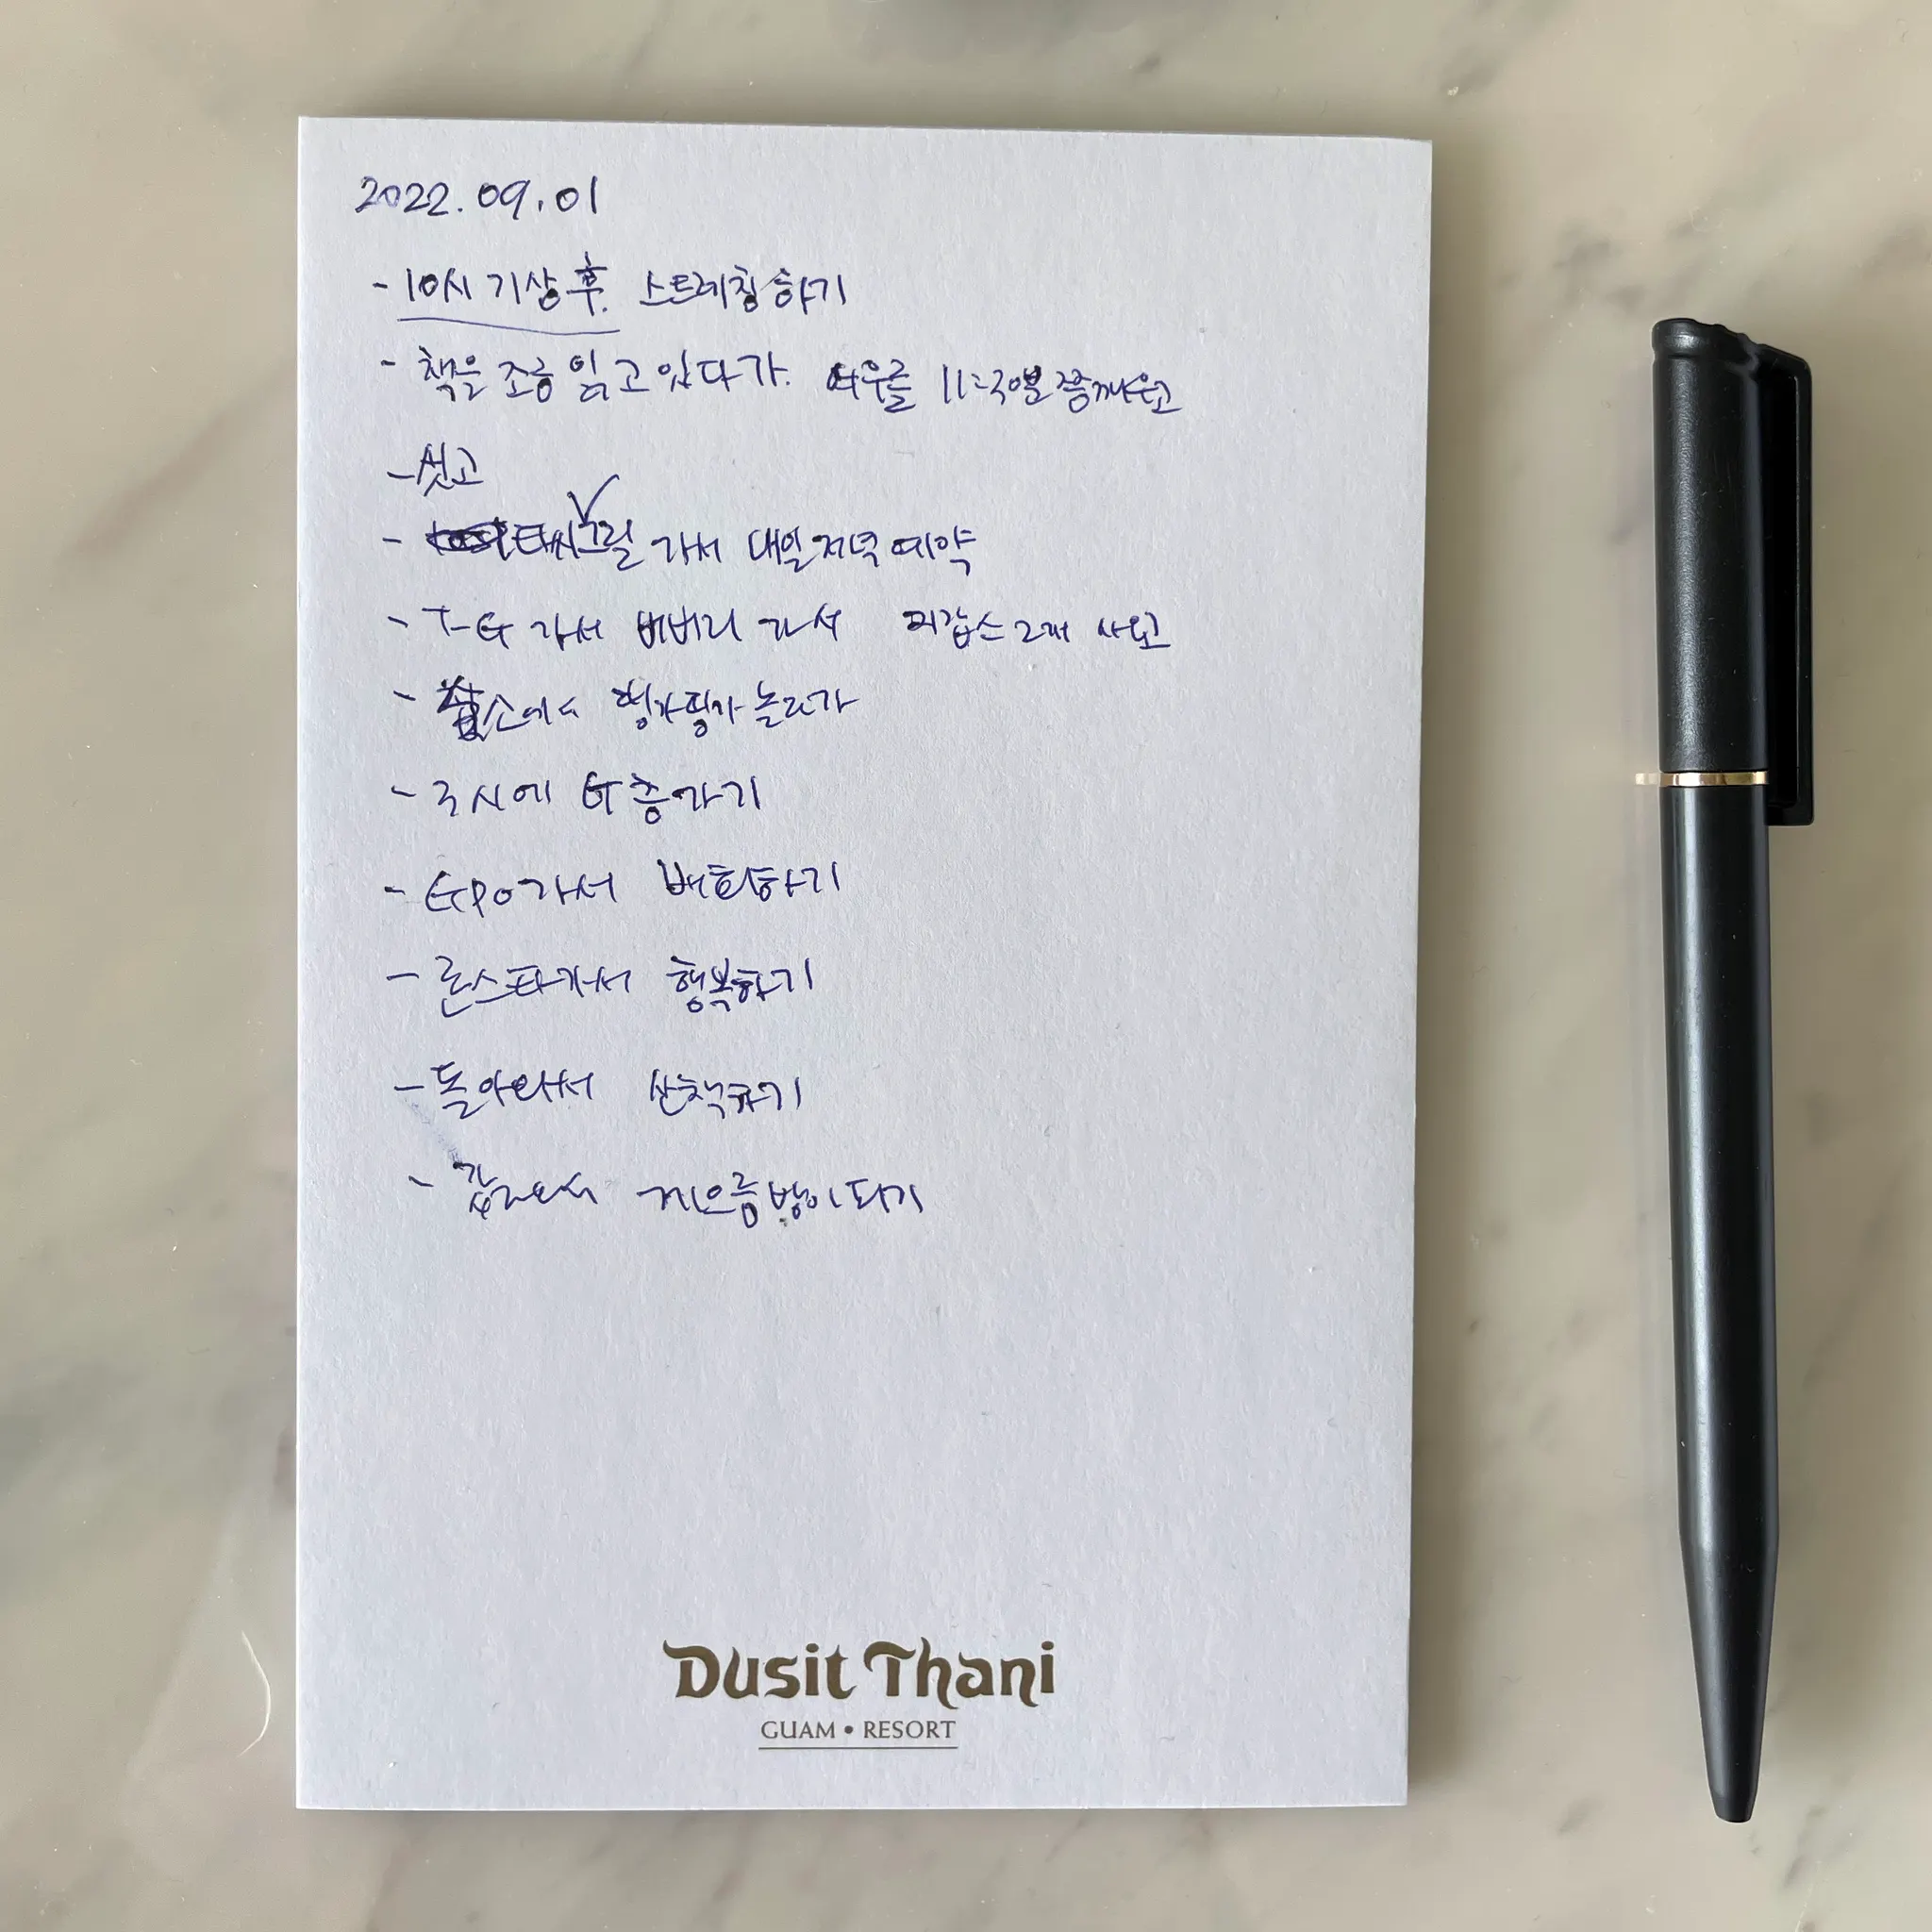 2022.09.01
- 10시 기상 후 스트레칭하기
- 책을 조금 읽고 있다가. 여우를 11:30분쯤 깨우고
- 씻고
- 타시그릴 가서 내일 저녁 예약
- T-G 가서 버버리 가서 2개 사고
- 숙소에서 놀다가
- 3시에 G층가기
- GPO가서 배회하기
- 론스타가서 행복하기
- 돌아와서 산책하기
- 게으름뱅이되기
Dusit Thani
GUAM • RESORT